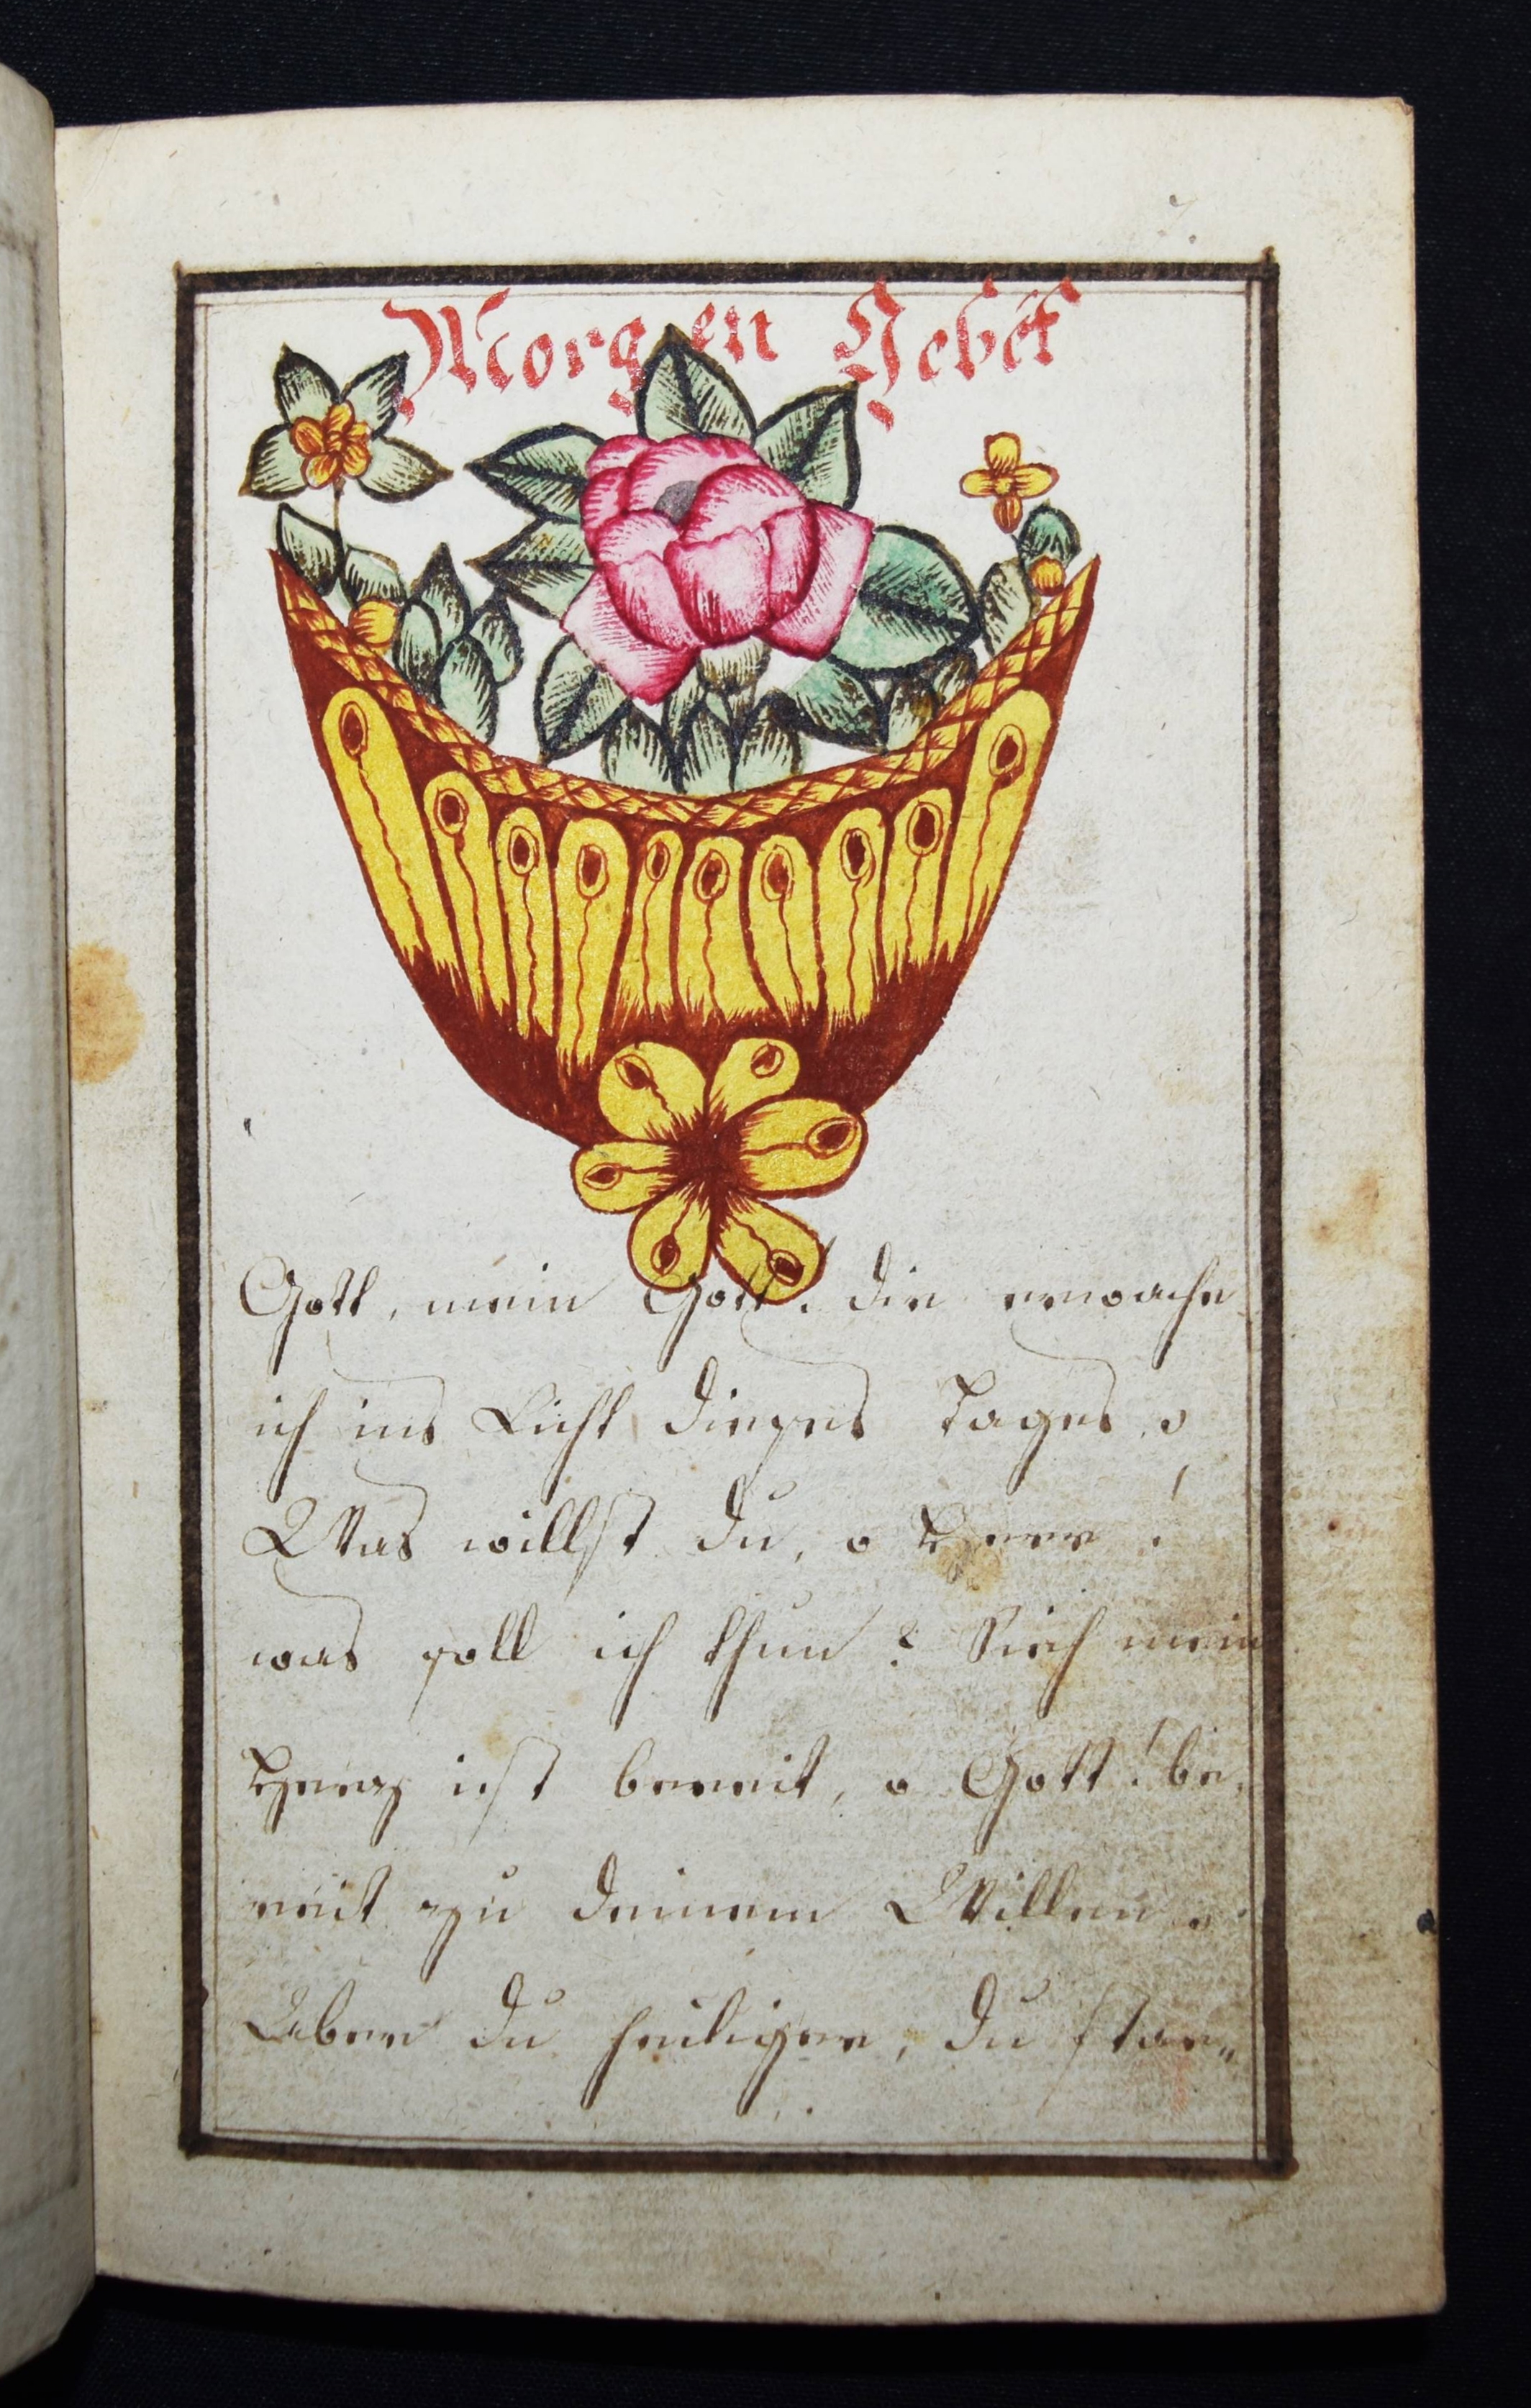 7.
Morgen Gebet
Gott, mein Gott! dir erwache
ich ins Licht dieses Tages,
Was willst du, o Herr!
was soll ich thun? Sieh mein
Herz ist bereit, o Gott! be¸
reit zu deinem Willen.
Aber du heiliger, du star„